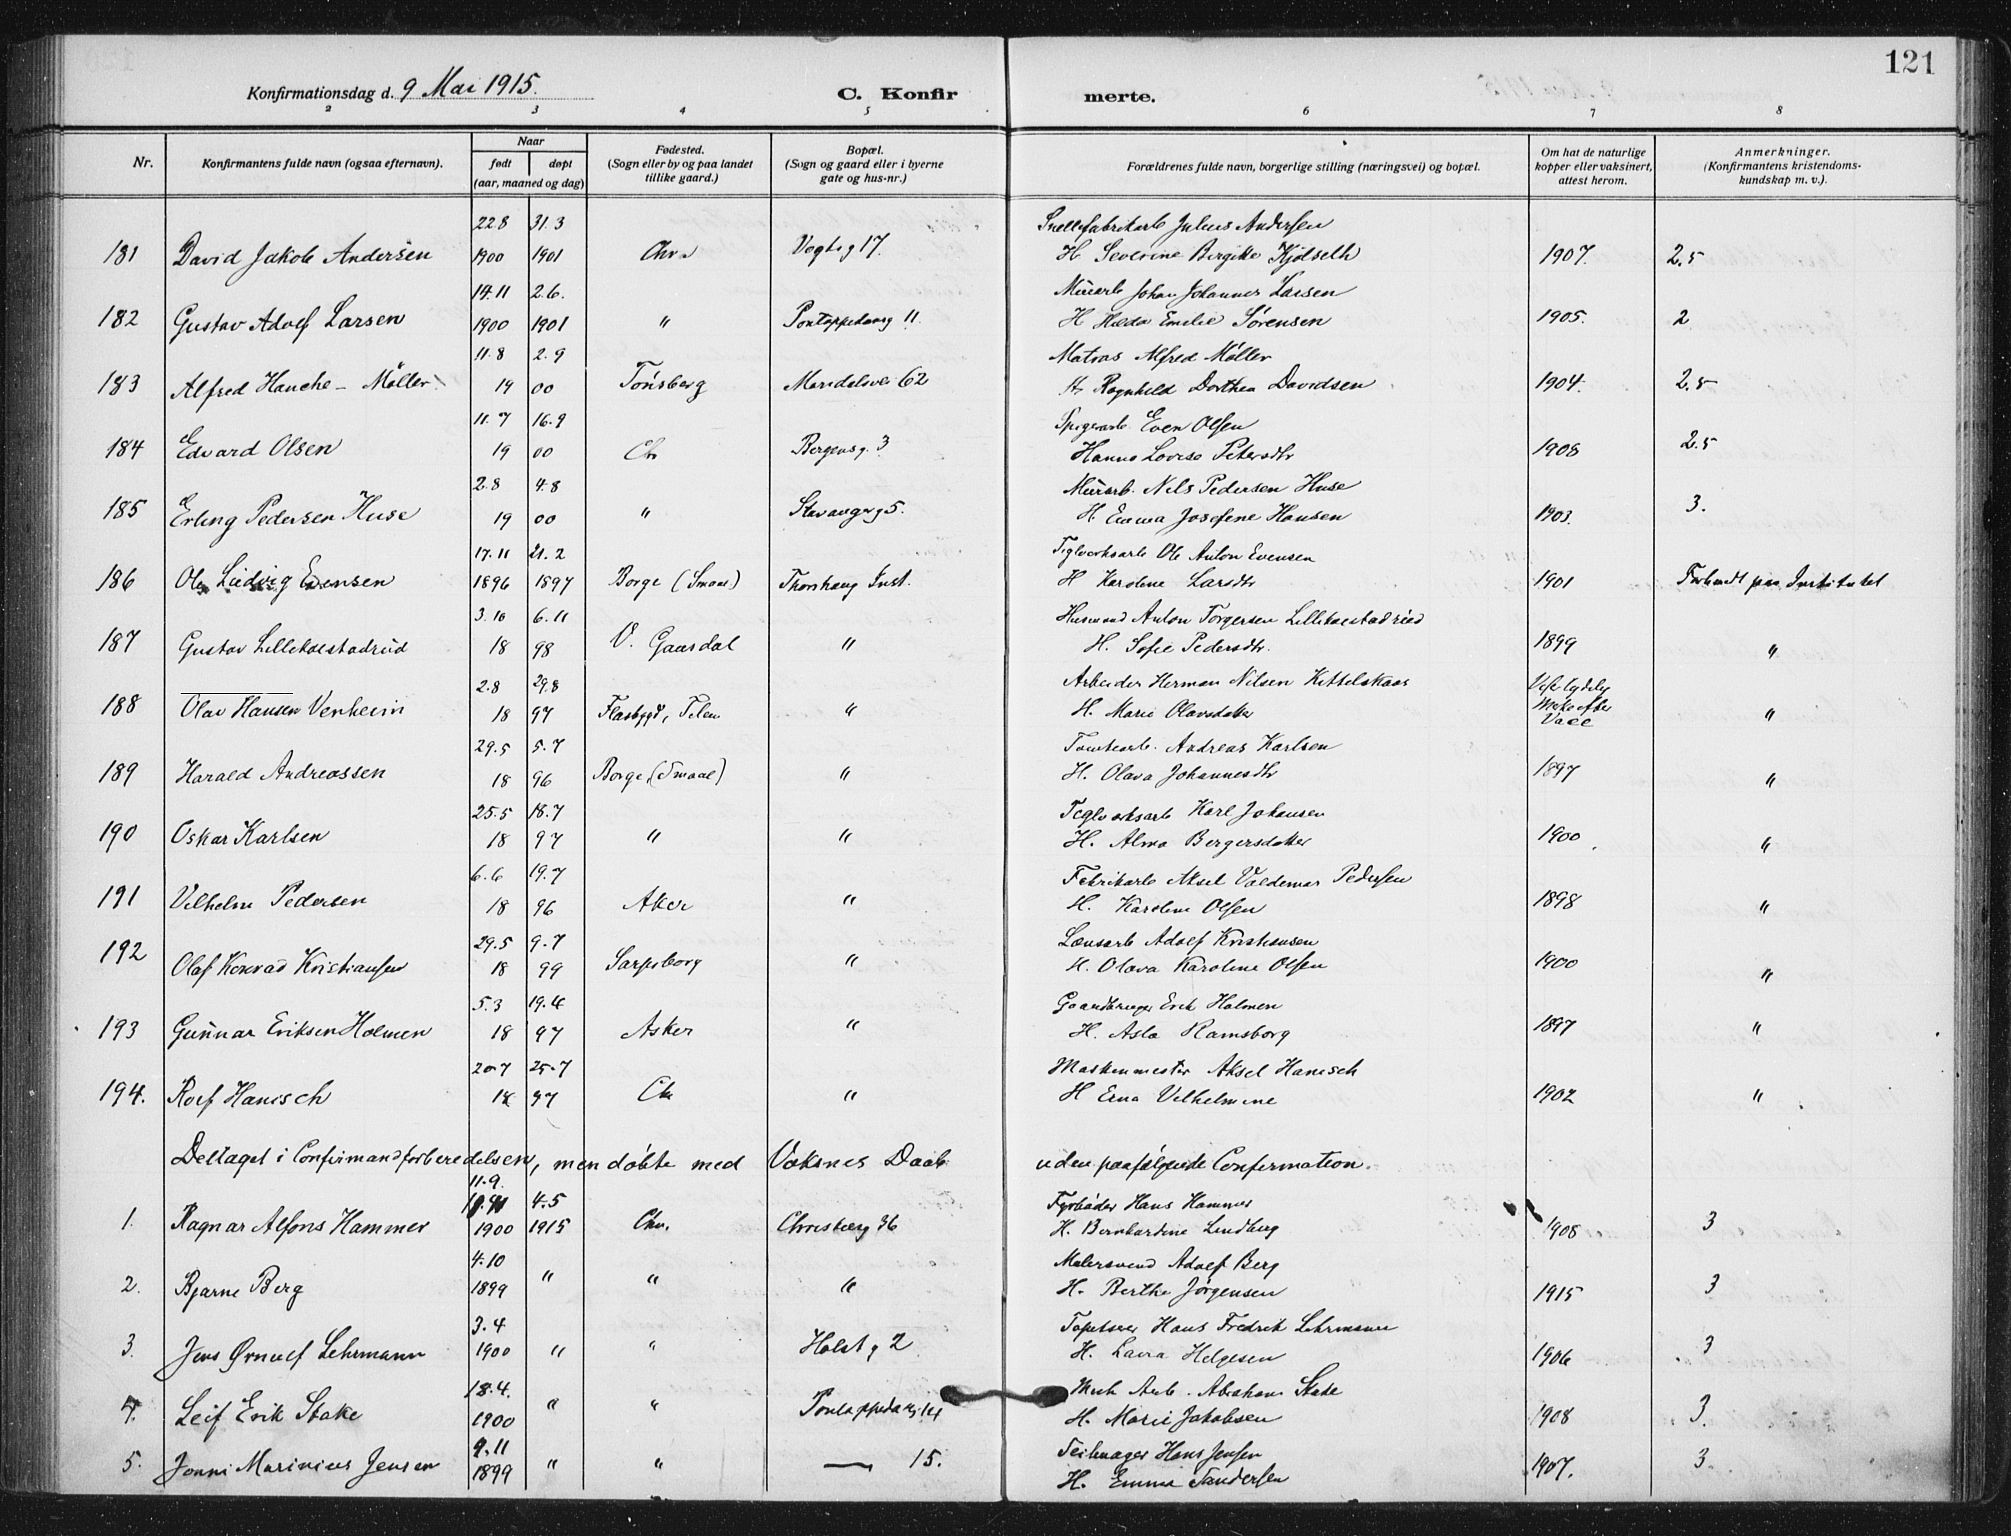 121
Konfirmationsdag d. 9 Mai 1915.
C. Konfirmerte.
2 3 4 5 6 7 8
Nr.
Konfirmantens fulde navn (ogsaa efternavn).
Naar
født
døpt
(aar, maaned og dag)
Fødested.
(Sogn eller by og paa landet
tillike gaard.)
Bopæl.
(Sogn og gaard eller i byerne
gate og hus-nr.)
Forældrenes fulde navn, borgerlige stilling (næringsvei) og bopæl.
Om hat de naturlige
kopper eller vaksinert,
attest herom.
Anmerkninger.
(Konfirmantens kristendoms-
kundskap m. v.).
22.8 31.3 Julius Andersen
181 David Jakob Andersen 1900 1901 Chr a Vogts g 17. H Severine Birgitte Kjölseth 1907. 2.5
14.11 2.6. Murarb Johan Johannes Larsen
182 Gustav Adolf Larsen 1900 1901 " Pontoppidansg 11. H Hilda Emilie Sørensen 1905. 2
11.8 2.9 Matros Alfred Møller
183 Alfred Hanche-Møller 19 00 Tönsberg Maridalsvei 62 H. Ragnhild Dorthea Davidsen 1904. 2.5
11.7 16.9 Spigerarb. Even Olsen
184 Edvard Olsen 19 00 Ch Bergensg. 3 Hanna Lovise Petersdtr 1908 2.5
2.8 4.8 Murarb. Nils Pedersen Huse
185 Erling Pedersen Huse 19 00 " Stavangerg 5. H. Emma Josefine Hansen 1903. 3.
17.11 21.2 Teglverksarb Ole Anton Evensen
186 Ole Ludvig Evensen 1896 1897 Borge (Smaal) Thorshaug Inst. H Karoline Larsdtr 1901 Forberedt paa Institutet
3.10 6.11 Husmand Anton Torgersen Lillekvestadrud
187 Gustav Lillekvestadrud 18 98 V. Gausdal " H. Sofie Pedersdtr. 1899 "
2.8 29.8 Arbeider Herman Nilsen Kittelskaas
188 Olav Hansen Venheim 18 97 Flasbygd, Telem " H. Marie Olavsdatter "
29.5 5.7 Tomtearb. Andreas Karlsen
189 Harald Andreassen 18 96 Borge (Smaal) " H. Olava Johannesdtr 1897 "
25.5 18.7 Teglverksarb Karl Johansen
190 Oskar Karlsen 18 97 " " H. Alma Bergersdatter 1900 "
6.6 19.7 Fabrikarb Aksel Valdemar Pedersen
191 Vilhelm Pedersen 18 96 Aker " H. Karoline Olsen 1898 "
29.5 9.7 Lænsarb Adolf Kristiansen
192 Olaf Konrad Kristiansen 18 99 Sarpsborg " H. Olava Karoline Olsen 1900 "
5.3 19.4 Gaardbruger Erik Holmen
193 Gunnar Eriksen Holmen 18 97 Asker " H. Asla Ramsborg 1897 "
20.7 25.7 Maskinmester Aksel Hanisch
194. Rolf Hanisch 18 97 Ch " H Erna Vilhelmine 1902 "
Deltaget i Confirmandforberedelsen, men döbte med Voksnes Daab uden paafølgende Confirmation.
11.9. 4.5 Fyrböder Hans Hammer
1. Ragnar Alfons Hammer 1900 1915 Chr. 36 H. Bernhardine Lindberg 1908 3
4.10 Malersvend Adolf Berg
2. Bjarne Berg 1899 " " " H. Berthe Jørgensen 1915 3
3.4 Tapetserer Hans Fredrik Lehrmann
3. Jens Ørnulf Lehrmann 1900 " " Holst g 2 H. Laura Helgesen 1906 3
18.4. Mek Arb. Abraham Stake
4. Leif Erik Stake 1900 " " Pontoppidansg. 14 H. Marie Jakobsen 1908 3.
9.11 Seilmager Hans Jensen
5. Jonni Marinius Jensen 1899 " " — 15. H. Emma Sandersen 1907. 3.